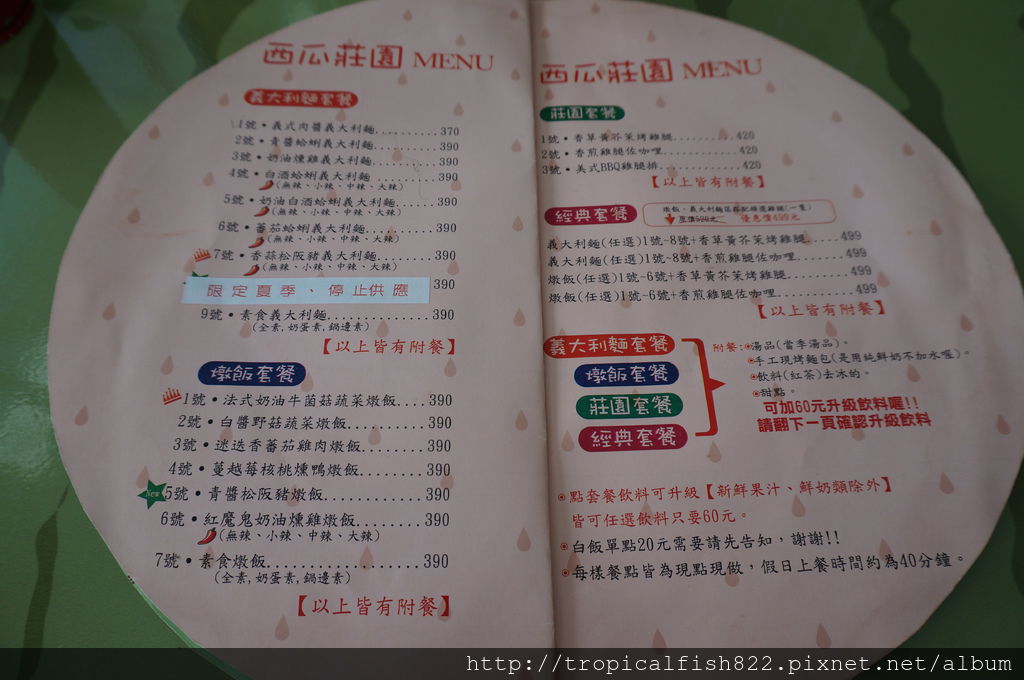 西瓜莊園 MENU
義大利麵套餐
1號•義式肉醬義大利麵..........370
2號•青醬蛤蜊義大利麵..........390
3號•奶油燻雞義大利麵..........390
4號•白酒蛤蜊義大利麵..........390
(無辣、小辣、中辣、大辣)
5號•奶油白酒蛤蜊義大利麵......390
(無辣、小辣、中辣、大辣)
6號•蕃茄蛤蜊義大利麵..........390
(無辣、小辣、中辣、大辣)
7號•香蒜松阪豬義大利麵........390
(無辣、小辣、中辣、大辣)
限定夏季、停止供應 390
9號•素食義大利麵..............390
(全素,奶蛋素,鍋邊素)
【以上皆有附餐】
燉飯套餐
1號•法式奶油牛菌菇蔬菜燉飯....390
2號•白醬野菇蔬菜燉飯..........390
3號•迷迭香蕃茄雞肉燉飯........390
4號•蔓越莓核桃燻鴨燉飯........390
New 5號•青醬松阪豬燉飯............390
6號•紅魔鬼奶油燻雞燉飯........390
(無辣、小辣、中辣、大辣)
7號•素食燉飯..................390
(全素,奶蛋素,鍋邊素)
【以上皆有附餐】
西瓜莊園 MENU
莊園套餐
1號•香草黃芥茉烤雞腿..........420
2號•香煎雞腿佐咖哩............420
3號•美式BBQ雞腿排.............420
【以上皆有附餐】
經典套餐
燉飯、義大利麵區搭配任選雞腿(一隻)
原價590元 優惠價499元
義大利麵(任選)1號~8號+香草黃芥茉烤雞腿.....499
義大利麵(任選)1號~8號+香煎雞腿佐咖哩.......499
燉飯(任選)1號~6號+香草黃芥茉烤雞腿.........499
燉飯(任選)1號~6號+香煎雞腿佐咖哩...........499
【以上皆有附餐】
義大利麵套餐
燉飯套餐
莊園套餐
經典套餐
附餐:◉湯品(當季湯品)。
◉手工現烤麵包(是用純鮮奶不加水喔)。
◉飲料(紅茶)去冰的。
◉甜點。
可加60元升級飲料喔!!
請翻下一頁確認升級飲料
◉點套餐飲料可升級【新鮮果汁、鮮奶類除外】
皆可任選飲料只要60元。
◉白飯單點20元需要請先告知，謝謝!!
◉每樣餐點皆為現點現做，假日上餐時間約為40分鐘。
http://tropicalfish822.pixnet.net/album